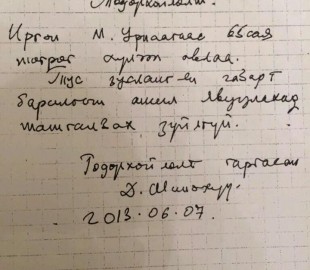 Тодорхойлолт.
Иргэн М. Урнаагаас 65 сая
төгрөг авлаа.
Тус зуслангийн газарт
барилгын ажил явуулахад
татгалзах зүйлгүй.
Тодорхойлолт гаргасан
Д.
2013.06.07.